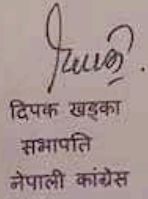 दिपक खड्का
सभापति
नेपाली कांग्रेस